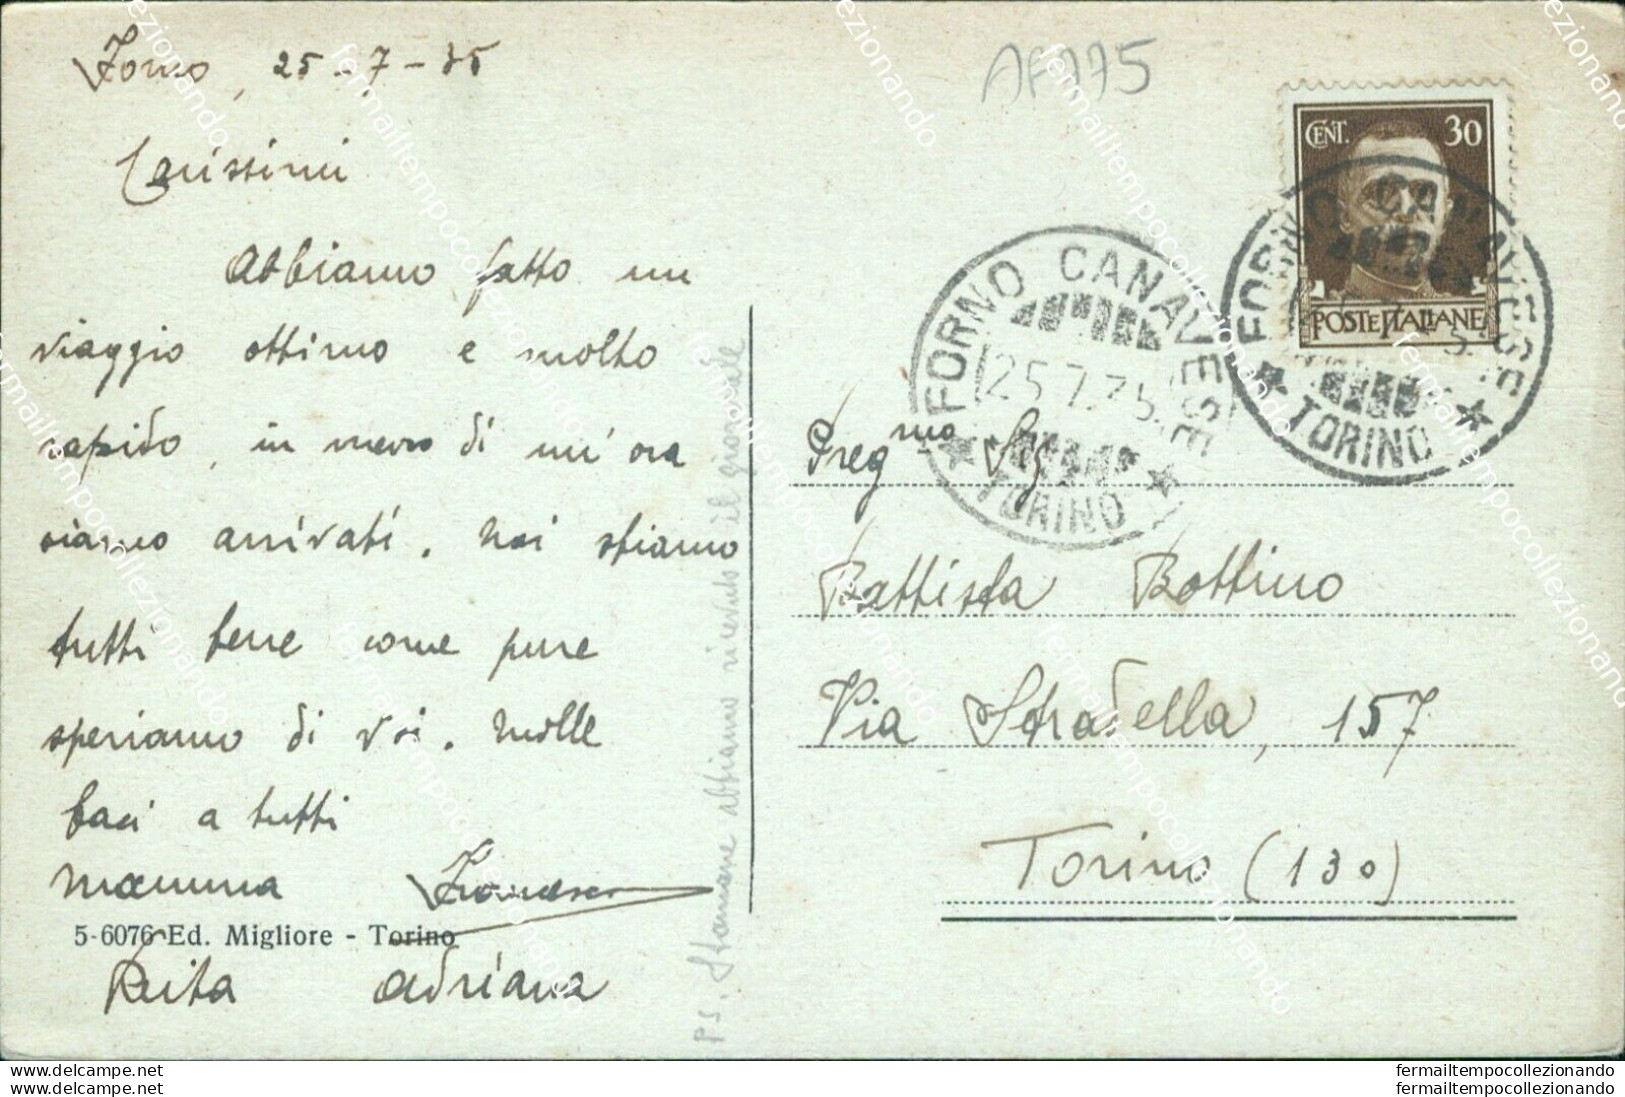 Forno, 25-7-35
AF775
Carissimi
Abbiamo fatto un
viaggio ottimo e molto
rapido, in meno di un'ora
siamo arrivati. Noi stiamo
tutti bene come pure
speriamo di voi. Mille
baci a tutti
mamma Francesco
5-6076 Ed. Migliore - Torino
Rita Adriana
PS. Stamane abbiamo ricevuto il giornale
CENT. 30
POSTE ITALIANE
FORNO CANAVESE
25.7.35.
TORINO
FORNO CANAVESE
TORINO
Preg.mo Sig.
Battista Bottino
Via Stradella, 157
Torino (130)
fermailtempocollezionando.com
fermailtempocollezionando.com
fermailtempocollezionando
fermailtempocollezionando